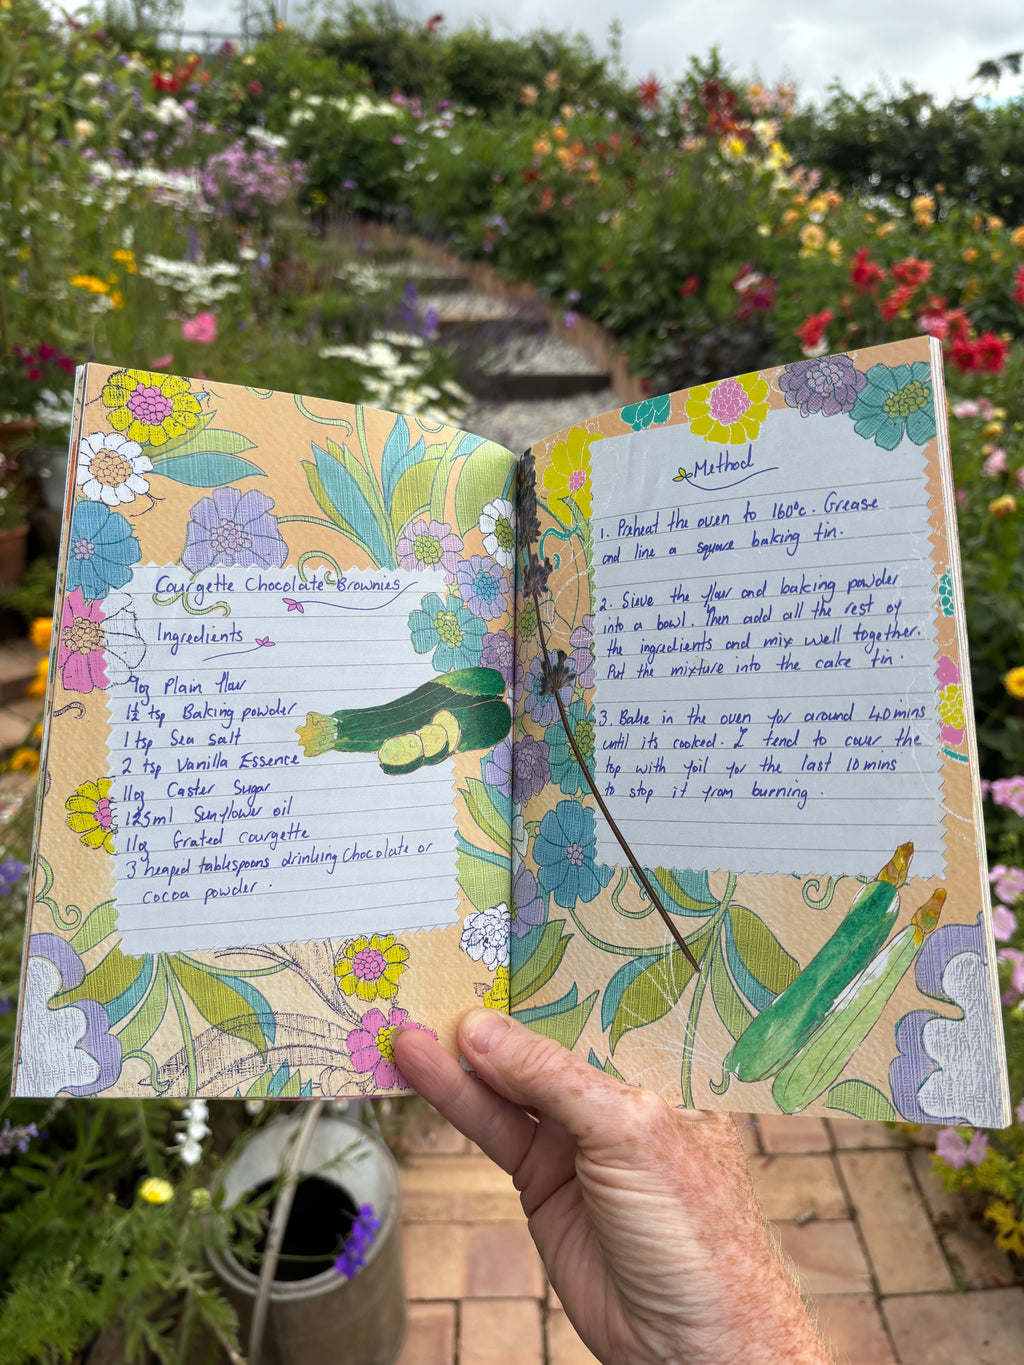 Courgette Chocolate Brownies
Ingredients
9oz Plain flour
1½ tsp Baking powder
1 tsp Sea salt
2 tsp Vanilla Essence
11oz Caster Sugar
125ml Sunflower oil
11oz Grated courgette
3 heaped tablespoons drinking Chocolate or
cocoa powder.
Method
1. Preheat the oven to 160°c. Grease
and line a square baking tin.
2. Sieve the flour and baking powder
into a bowl. Then add all the rest of
the ingredients and mix well together.
Put the mixture into the cake tin.
3. Bake in the oven for around 40mins
until its cooked. I tend to cover the
top with foil for the last 10mins
to stop it from burning.